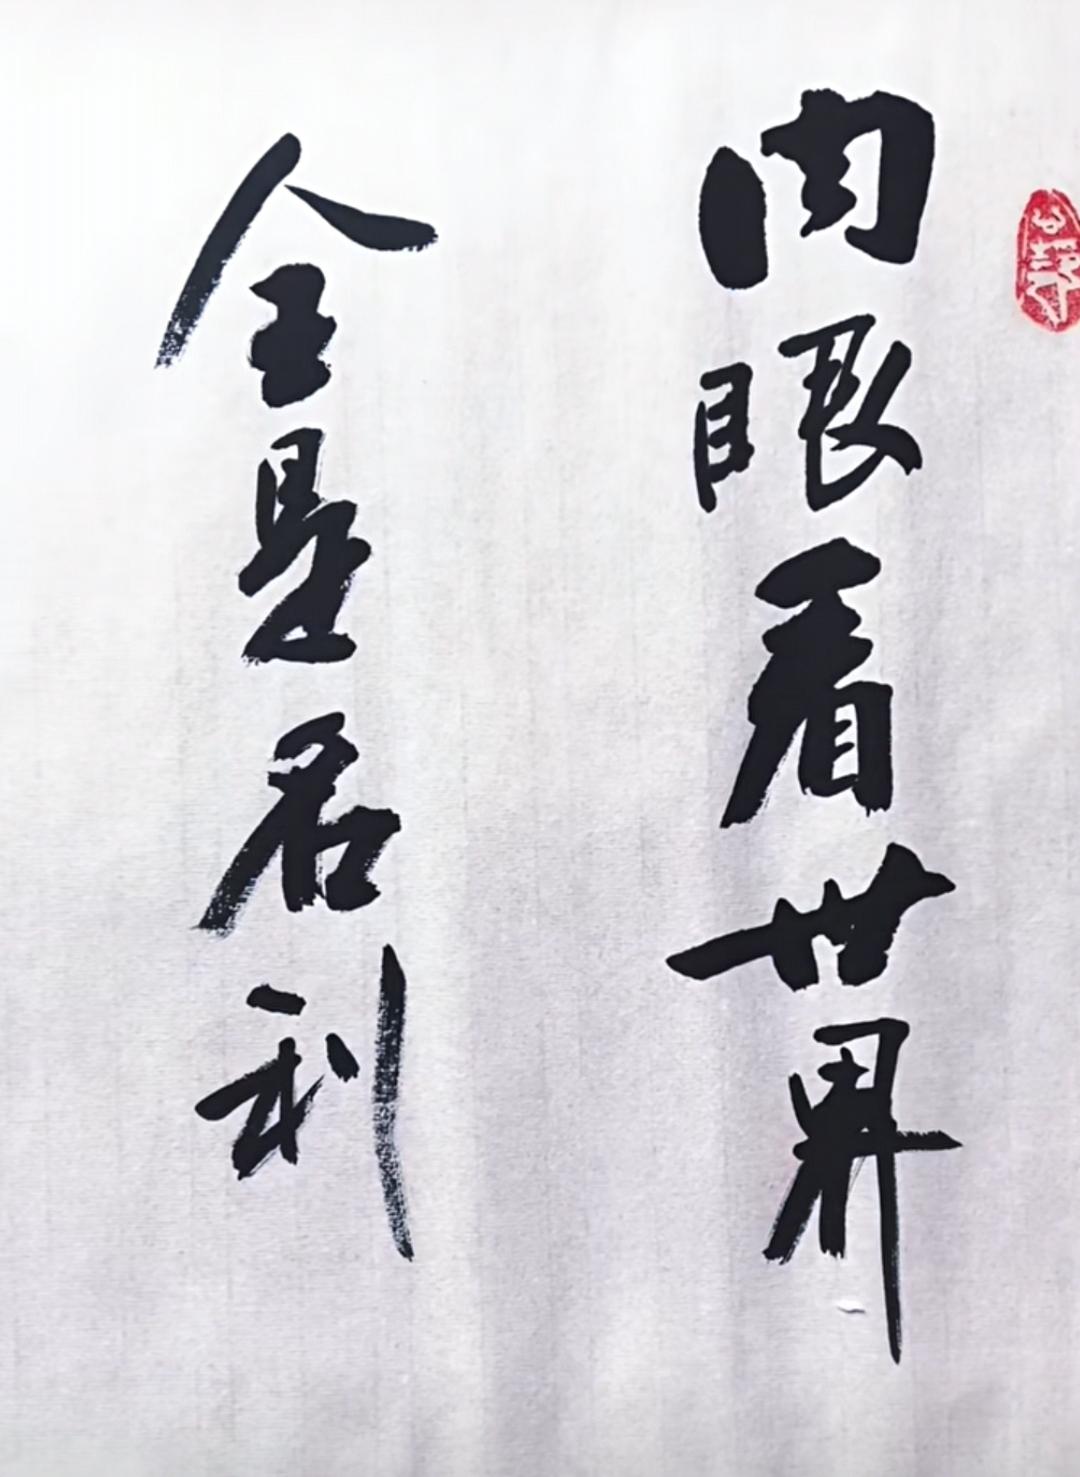 肉眼看世界
全是名利